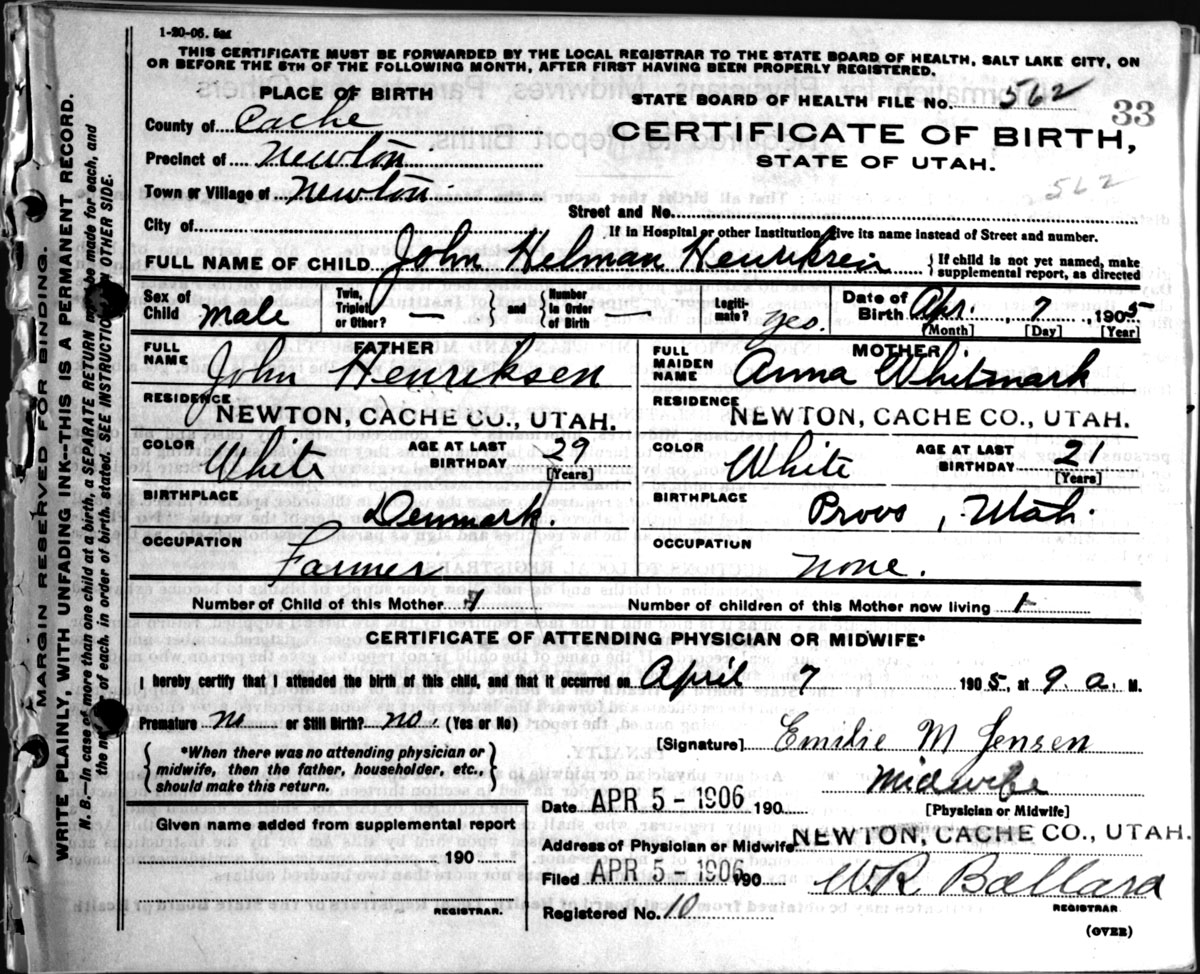 1-20-06. 5M
THIS CERTIFICATE MUST BE FORWARDED BY THE LOCAL REGISTRAR TO THE STATE BOARD OF HEALTH, SALT LAKE CITY, ON
OR BEFORE THE 5TH OF THE FOLLOWING MONTH, AFTER FIRST HAVING BEEN PROPERLY REGISTERED.
PLACE OF BIRTH
STATE BOARD OF HEALTH FILE NO. 562
33
County of Cache
CERTIFICATE OF BIRTH,
Precinct of Newton
STATE OF UTAH.
562
Town or Village of Newton.
Street and No.
City of If in Hospital or other Institution, give its name instead of Street and number.
FULL NAME OF CHILD John Helman Henriksen { If child is not yet named, make
supplemental report, as directed
Sex of Child male
Twin, Triplet or Other? — { and } Number in Order of Birth —
Legitimate? yes.
Date of Birth Apr. 7, 1905
[Month] [Day] [Year]
FATHER
FULL NAME John Henriksen
MOTHER
FULL MAIDEN NAME Anna Whitmark
RESIDENCE NEWTON, CACHE CO., UTAH.
RESIDENCE NEWTON, CACHE CO., UTAH.
COLOR White AGE AT LAST BIRTHDAY 29 [Years]
COLOR White AGE AT LAST BIRTHDAY 21 [Years]
BIRTHPLACE Denmark.
BIRTHPLACE Provo, Utah.
OCCUPATION Farmer
OCCUPATION none.
Number of Child of this Mother 1 Number of children of this Mother now living 1
CERTIFICATE OF ATTENDING PHYSICIAN OR MIDWIFE*
I hereby certify that I attended the birth of this child, and that it occurred on April 7 1905, at 9. a. M.
Premature no or Still Birth? no. (Yes or No)
[Signature] Emilie M Jensen
{ *When there was no attending physician or
midwife, then the father, householder, etc.,
should make this return. }
Midwife
[Physician or Midwife]
Date APR 5-1906 190
Given name added from supplemental report
190
REGISTRAR.
Address of Physician or Midwife NEWTON, CACHE CO., UTAH.
Filed APR 5-1906 190 W R Ballard
REGISTRAR
Registered No. 10
(OVER)
MARGIN RESERVED FOR BINDING.
WRITE PLAINLY, WITH UNFADING INK--THIS IS A PERMANENT RECORD.
N. B. In case of more than one child at a birth, a SEPARATE RETURN must be made for each, and
the no. of each, in order of birth, stated. SEE INSTRUCTIONS ON OTHER SIDE.